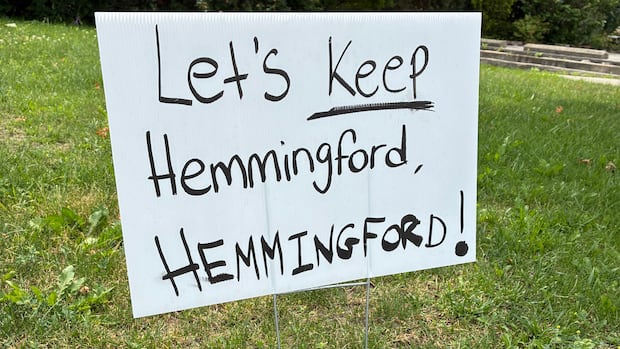 Let's Keep
Hemmingford,
HEMMINGFORD!